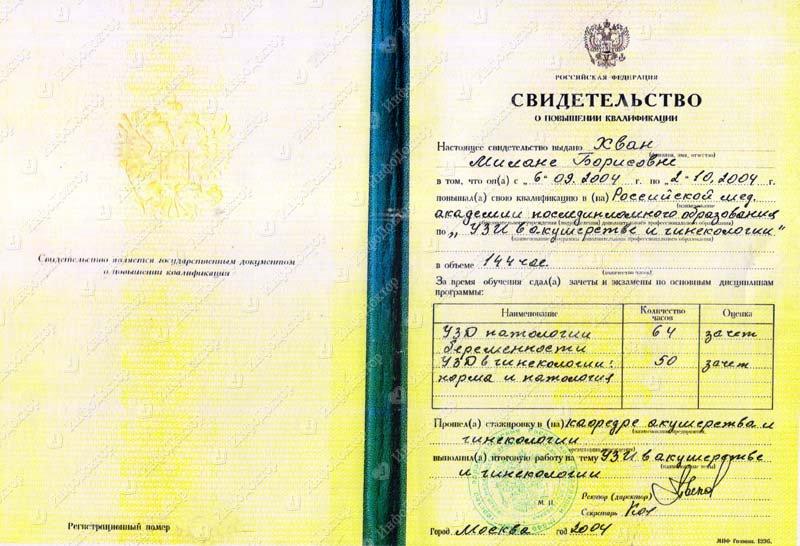 Свидетельство является государственным документом
о повышении квалификации
Регистрационный номер
РОССИЙСКАЯ ФЕДЕРАЦИЯ
СВИДЕТЕЛЬСТВО
О ПОВЫШЕНИИ КВАЛИФИКАЦИИ
Настоящее свидетельство выдано Хван
Милане Борисовне
(фамилия, имя, отчество)
в том, что он(а) с „6-09.2004 г. по „2-10.2004 г.
повышал(а) свою квалификацию в (на) Российской мед.
(наименование)
академии последипломного образования
по „УЗИ в акушерстве и гинекологии"
(наименование программы дополнительного профессионального образования)
в объеме 144 час.
(количество часов)
За время обучения сдал(а) зачеты и экзамены по основным дисциплинам
программы:
Наименование Количество часов Оценка
УЗД патологии 64 зачет
беременности
УЗД в гинекологии: 50 зачет
норма и патология
Прошел(а) стажировку в (на) кафедре акушерства и
гинекологии
выполнил(а) итоговую работу на тему УЗИ в акушерстве
(наименование темы)
и гинекологии
М. П.
Ректор (директор)
Секретарь
Город Москва год 2004
ИнфоДоктор